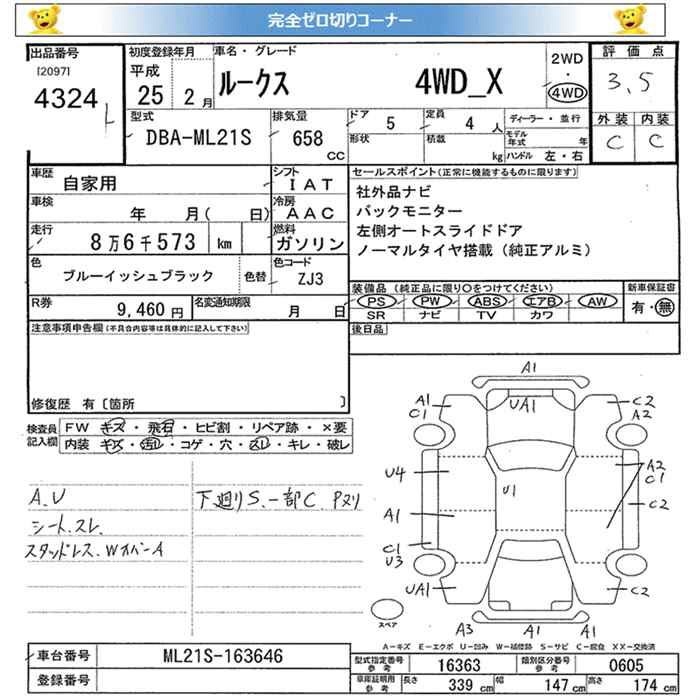 完全ゼロ切りコーナー
出品番号
[2097]
4324
L
初度登録年月
平成
25 2月
車名・グレード
ルークス 4WD_X
2WD
・
4WD
評価点
3.5
外装 内装
C C
型式
DBA-ML21S
排気量
658
CC
ドア 5
形状
定員 4 人
積載 kg
ディーラー・並行
モデル年式 年
ハンドル 左・右
車歴
自家用
シフト
IAT
車検
年 月( 日)
冷房
AAC
走行
8万6千573 km
燃料
ガソリン
色
ブルーイッシュブラック
色替
色コード
ZJ3
R券
9,460 円
名変通知期限
月 日
セールスポイント(正常に機能するものに限ります)
社外品ナビ
バックモニター
左側オートスライドドア
ノーマルタイヤ搭載(純正アルミ)
装備品(純正品に限り○をつけてください)
PS PW ABS エアB AW
SR ナビ TV カワ
新車保証書
有・無
後日品
注意事項申告欄(不具合内容等は具体的に記入して下さい)
修復歴 有〔箇所 〕
検査員記入欄
FW キズ・飛石・ヒビ割・リペア跡・×要
内装 キズ・汚レ・コゲ・穴・スレ・キレ・破レ
A.U
シート.スレ.
スタッドレス.WオバーA
下廻りS.一部C.Pヌリ
A1
UA1
A1
C1
C2
A2
U4
U1
A2
C1
A1
C2
C1
U3
UA1
C2
A3
A1
A1
スペア
A-キズ E-エクボ U-凹み W-補修跡 S-サビ C-腐食 XX-交換済
車台番号 ML21S-163646
登録番号
型式指定番号 参考 16363
類別区分番号 参考 0605
車庫証明用 参考
長さ 339 cm
幅 147 cm
高さ 174 cm